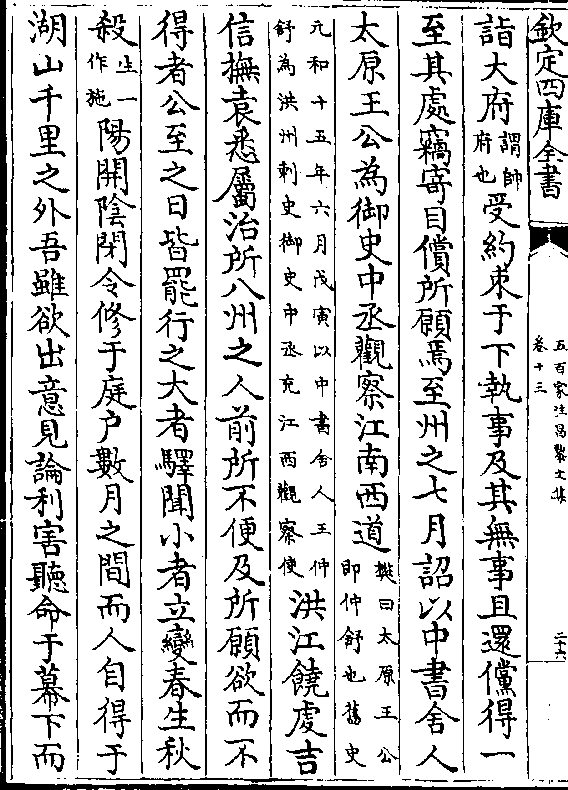 欽定四庫全書
五百家注昌黎文集
卷十三
二十六
詣大府謂帥府也受約束于下執事及其無事且還儻得一
至其處竊寄目償所願焉至州之七月詔以中書舍人
太原王公為御史中丞觀察江南西道樊曰太原王公即仲舒也舊史
元和十五年六月戊寅以中書舍人王仲舒為洪州刺史御史中丞充江西觀察使洪江饒虔吉
信撫袁悉屬治所八州之人前所不便及所願欲而不
得者公至之日皆罷行之大者驛聞小者立變春生秋
殺生一作施陽開陰閉令修于庭户數月之間而人自得于
湖山千里之外吾雖欲出意見論利害聽命于幕下而